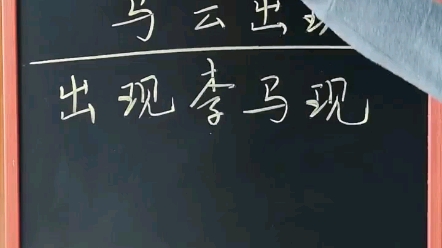 马云出现
出现李马现